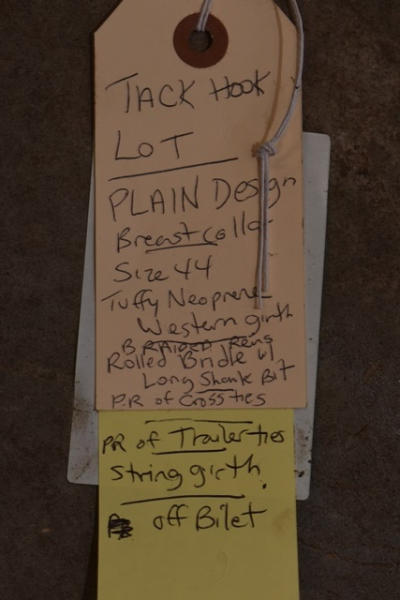 TACK HOOK
LOT
PLAIN Design
Breast Collar
Size 44
Tuffy Neoprene
Western girth
BRAIDED Reins
Rolled Bridle w/
Long Shank Bit
P.R of Cross ties
PR of Trailer ties
String girth.
off Bilet